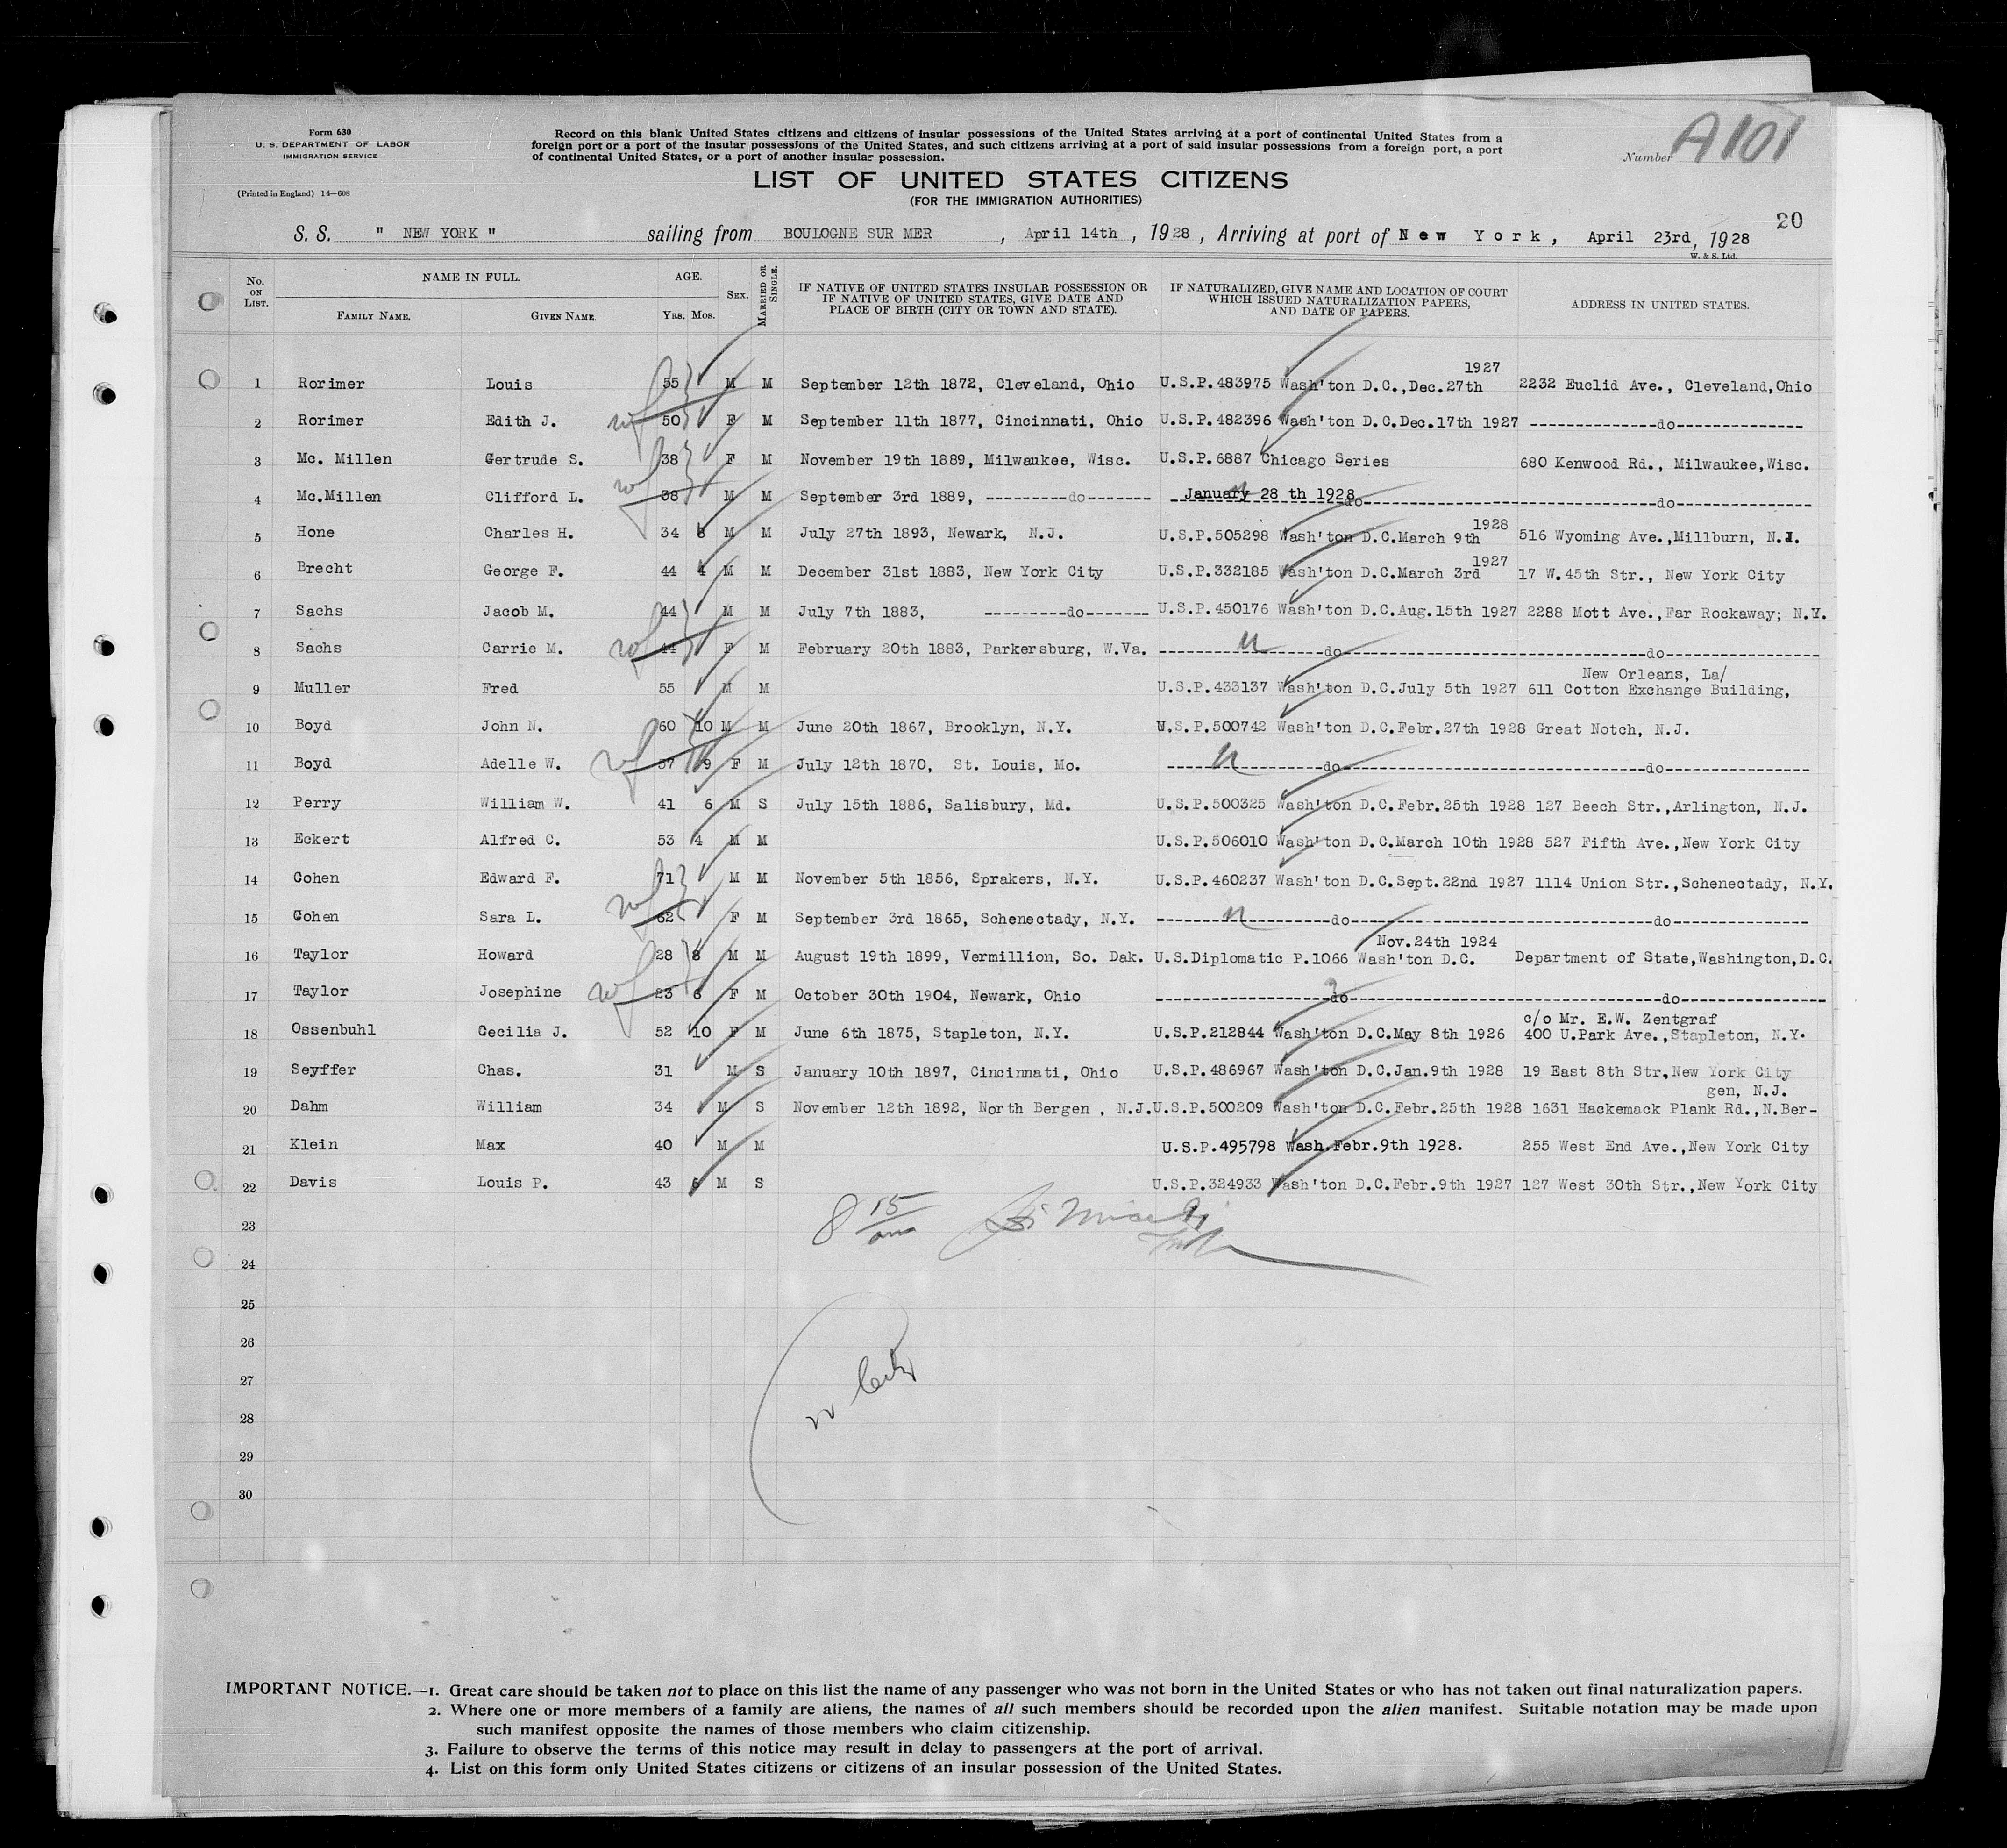 Form 630
U. S. DEPARTMENT OF LABOR
IMMIGRATION SERVICE
(Printed in England) 14—608
Record on this blank United States citizens and citizens of insular possessions of the United States arriving at a port of continental United States from a
foreign port or a port of the insular possessions of the United States, and such citizens arriving at a port of said insular possessions from a foreign port, a port
of continental United States, or a port of another insular possession.
Number A101
LIST OF UNITED STATES CITIZENS
(FOR THE IMMIGRATION AUTHORITIES)
20
S. S. " NEW YORK " sailing from BOULOGNE SUR MER , April 14th , 1928 , Arriving at port of New York, April 23rd, 1928
W. & S. Ltd.
No. ON LIST. NAME IN FULL. FAMILY NAME. GIVEN NAME. AGE. YRS. MOS. SEX. MARRIED OR SINGLE. IF NATIVE OF UNITED STATES INSULAR POSSESSION OR IF NATIVE OF UNITED STATES, GIVE DATE AND PLACE OF BIRTH (CITY OR TOWN AND STATE). IF NATURALIZED, GIVE NAME AND LOCATION OF COURT WHICH ISSUED NATURALIZATION PAPERS, AND DATE OF PAPERS. ADDRESS IN UNITED STATES.
1927
1 Rorimer Louis 55 M M September 12th 1872, Cleveland, Ohio U.S.P.483975 Wash'ton D.C.,Dec.27th 2232 Euclid Ave., Cleveland,Ohio
2 Rorimer Edith J. 50 F M September 11th 1877, Cincinnati, Ohio U.S.P.482396 Wash'ton D.C.Dec.17th 1927 --------------do--------------
3 Mc. Millen Gertrude S. 38 F M November 19th 1889, Milwaukee, Wisc. U.S.P.6887 Chicago Series 680 Kenwood Rd., Milwaukee,Wisc.
4 Mc.Millen Clifford L. 38 M M September 3rd 1889, ---------do------- January 28 th 1928 do--------------do--------------
1928
5 Hone Charles H. 34 8 M M July 27th 1893, Newark, N.J. U.S.P.505298 Wash'ton D.C.March 9th 516 Wyoming Ave.,Millburn, N.J.
1927
6 Brecht George F. 44 4 M M December 31st 1883, New York City U.S.P.332185 Wash'ton D.C.March 3rd 17 W.45th Str., New York City
7 Sachs Jacob M. 44 M M July 7th 1883, ---------do------- U.S.P.450176 Wash'ton D.C.Aug.15th 1927 2288 Mott Ave.,Far Rockaway; N.Y.
8 Sachs Carrie M. 44 F M February 20th 1883, Parkersburg, W.Va. --------------do--------------do--------------
New Orleans, La/
9 Muller Fred 55 M M U.S.P.433137 Wash'ton D.C.July 5th 1927 611 Cotton Exchange Building,
10 Boyd John N. 60 10 M M June 20th 1867, Brooklyn, N.Y. U.S.P.500742 Wash'ton D.C.Febr.27th 1928 Great Notch, N.J.
11 Boyd Adelle W. 57 9 F M July 12th 1870, St. Louis, Mo. --------------do--------------do--------------
12 Perry William W. 41 6 M S July 15th 1886, Salisbury, Md. U.S.P.500325 Wash'ton D.C.Febr.25th 1928 127 Beech Str.,Arlington, N.J.
13 Eckert Alfred C. 53 4 M M U.S.P.506010 Wash'ton D.C.March 10th 1928 527 Fifth Ave.,New York City
14 Cohen Edward F. 71 M M November 5th 1856, Sprakers, N.Y. U.S.P.460237 Wash'ton D.C.Sept.22nd 1927 1114 Union Str.,Schenectady, N.Y.
15 Cohen Sara L. 62 F M September 3rd 1865, Schenectady, N.Y. --------------do--------------do--------------
Nov.24th 1924
16 Taylor Howard 28 8 M M August 19th 1899, Vermillion, So. Dak. U.S.Diplomatic P.1066 Wash'ton D.C. Department of State,Washington,D.C.
17 Taylor Josephine 23 6 F M October 30th 1904, Newark, Ohio --------------do--------------do--------------
c/o Mr. E.W. Zentgraf
18 Ossenbuhl Cecilia J. 52 10 F M June 6th 1875, Stapleton, N.Y. U.S.P.212844 Wash'ton D.C.May 8th 1926 400 U.Park Ave.,Stapleton, N.Y.
19 Seyffer Chas. 31 M S January 10th 1897, Cincinnati, Ohio U.S.P.486967 Wash'ton D.C.Jan.9th 1928 19 East 8th Str,New York City
gen, N.J.
20 Dahm William 34 M S November 12th 1892, North Bergen , N.J. U.S.P.500209 Wash'ton D.C.Febr.25th 1928 1631 Hackemack Plank Rd.,N.Ber-
21 Klein Max 40 M M U.S.P.495798 Wash.Febr.9th 1928. 255 West End Ave.,New York City
22 Davis Louis P. 43 6 M S U.S.P.324933 Wash'ton D.C.Febr.9th 1927 127 West 30th Str.,New York City
8 15 am
23
24
25
26
27
28
29
30
IMPORTANT NOTICE.—1. Great care should be taken not to place on this list the name of any passenger who was not born in the United States or who has not taken out final naturalization papers.
2. Where one or more members of a family are aliens, the names of all such members should be recorded upon the alien manifest. Suitable notation may be made upon
such manifest opposite the names of those members who claim citizenship.
3. Failure to observe the terms of this notice may result in delay to passengers at the port of arrival.
4. List on this form only United States citizens or citizens of an insular possession of the United States.